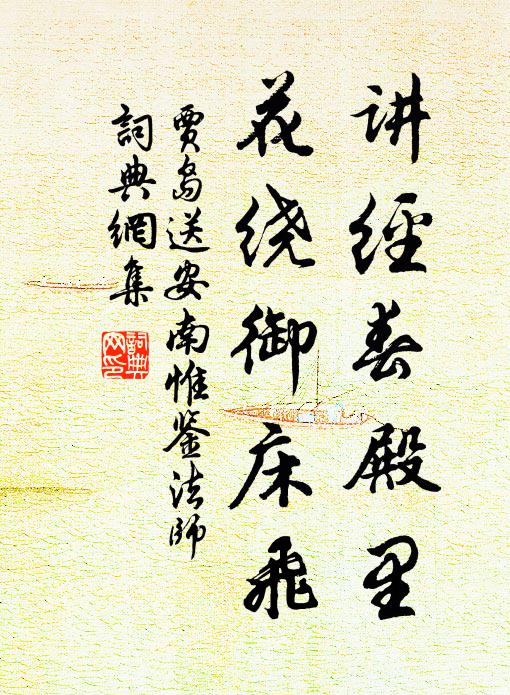 讲经春殿里
花绕御床飛
賈島送安南惟鉴法師
詞典網集
詞典
网印